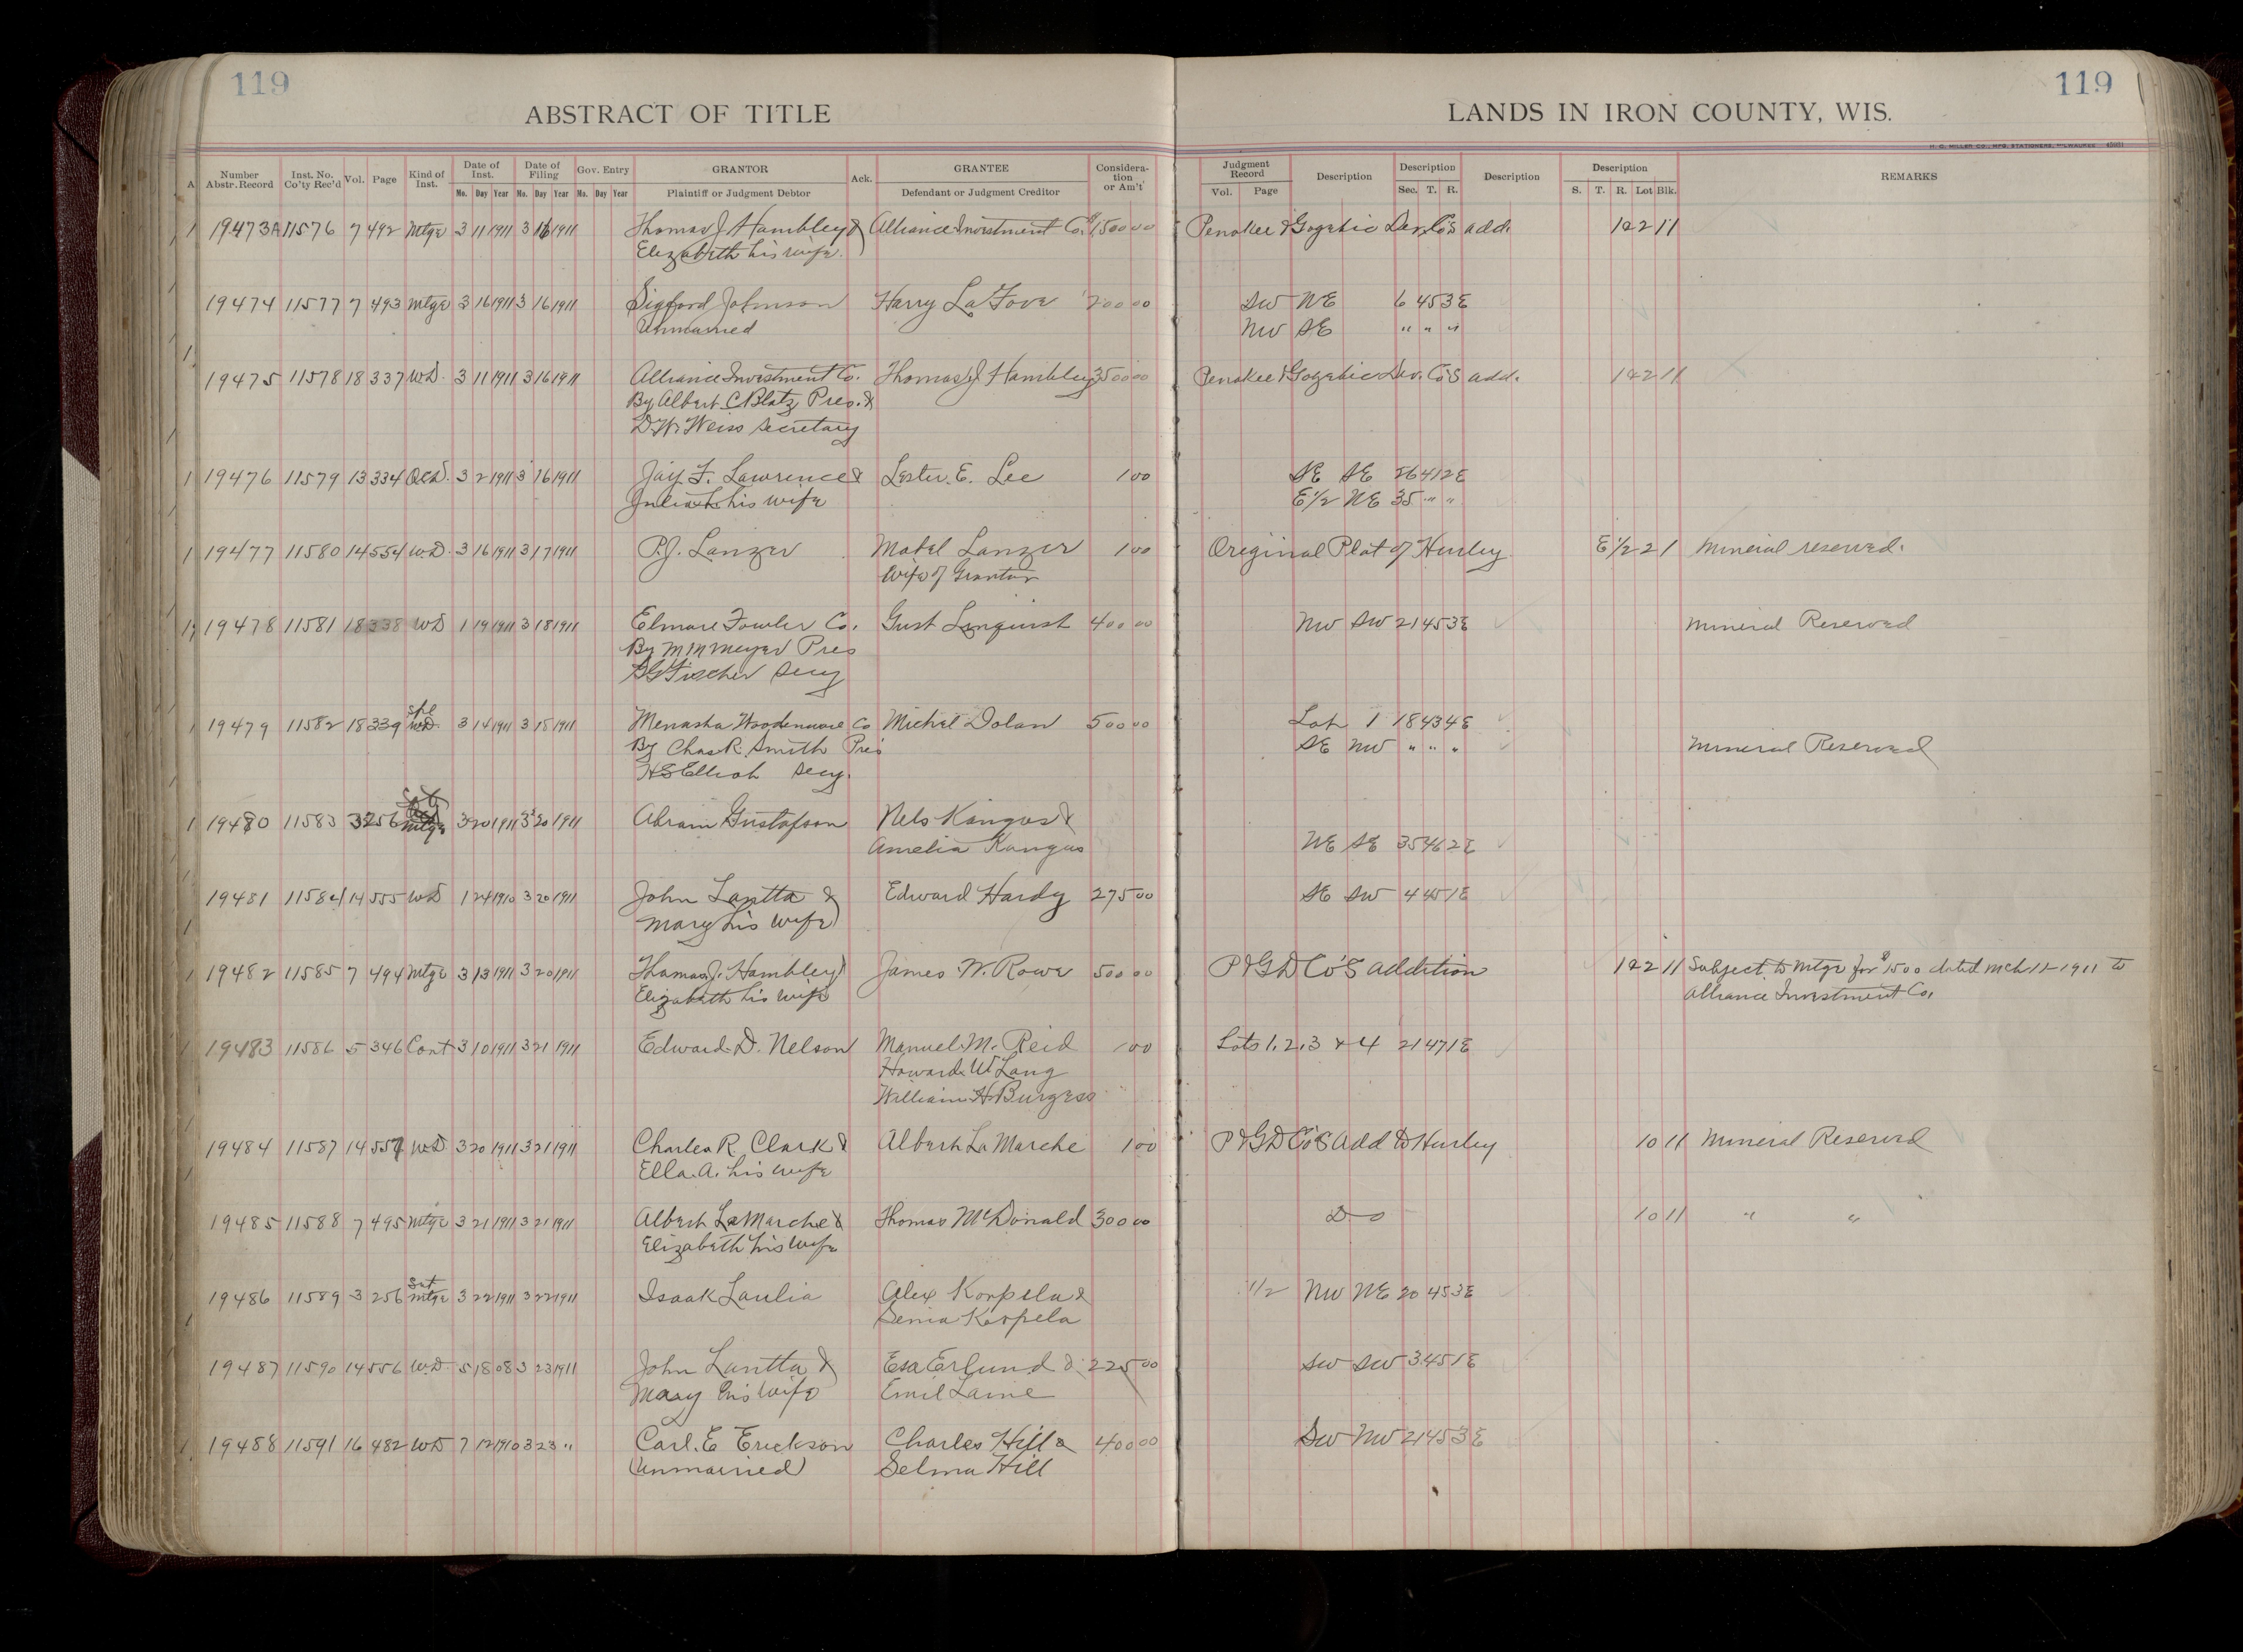 119
119
ABSTRACT OF TITLE
LANDS IN IRON COUNTY, WIS.
H. G. MILLER CO., MFG. STATIONERS, MILWAUKEE
A Number Abstr. Record Inst. No. Co'ty Rec'd Vol. Page Kind of Inst. Date of Inst. Mo. Day Year Date of Filing Mo. Day Year Gov. Entry Mo. Day Year GRANTOR Plaintiff or Judgment Debtor Ack. GRANTEE Defendant or Judgment Creditor Considera-tion or Am't Judgment Record Vol. Page Description Description Sec. T. R. Description Description S. T. R. Lot Blk. REMARKS
1 19473A 11576 7 492 Mtge 3 11 1911 3 16 1911 Thomas J. Hambley & Alliance Investment Co. $1500 00 Penokee & Gogebic Dev. Co's add. 1&2 11
Elizabeth his wife.
19474 11577 7 493 Mtge 3 16 1911 3 16 1911 Sigford Johnson Harry La Fove 200 00 SW NE 6 45 3E
Unmarried NW SE " " "
19475 11578 18 337 WD. 3 11 1911 3 16 1911 Alliance Investment Co. Thomas J. Hambley 3500 00 Penokee & Gogebic Dev. Co's add. 1&2 11
By Albert C Blatz Pres. &
D.W. Weiss Secretary
1 19476 11579 13 334 QCD. 3 2 1911 3 16 1911 Jay F. Lawrence & Lester E. Lee 1 00 SE SE 26 41 2E
his wife E1/2 NE 35 " "
1 19477 11580 14 554 WD. 3 16 1911 3 17 1911 P.J. Lanzer Mabel Lanzer 1 00 Original Plat of Hurley E1/2 2 1 Mineral reserved.
Wife of Grantor
1 19478 11581 18 338 WD 1 19 1911 3 18 1911 Elmore Fowler Co. Gust Linquist 400 00 NW SW 21 45 3E Mineral Reserved
By M M Meyer Pres
Fischer Secy
1 19479 11582 18 339 Spl WD. 3 14 1911 3 18 1911 Menasha Woodenware Co Michel Dolan 500 00 Lot 1 18 43 4E
By Chas R. Smith Pres SE NW " " " Mineral Reserved
H S Elliot Secy.
1 19480 11583 3 256 Mtge 3 20 1911 3 20 1911 Abram Gustafson Nels Kangas &
Amelia Kangas NE SE 35 46 2E
19481 11584 14 555 WD 1 24 1910 3 20 1911 John Lantta & Edward Hardy 275 00 SE SW 4 45 1E
Mary his wife
1 19482 11585 7 494 Mtge 3 13 1911 3 20 1911 Thomas J. Hambley & James W. Rowe 500 00 P & G D Co's addition 1&2 11 Subject to Mtge for $1500 dated Mch 11-1911 to
Elizabeth his wife Alliance Investment Co.
19483 11586 5 346 Cont 3 10 1911 3 21 1911 Edward D. Nelson Manuel M. Reid 1 00 Lots 1, 2, 3 & 4 21 47 1E
Howard W Lang
William H. Burgess
19484 11587 14 557 WD 3 20 1911 3 21 1911 Charles R. Clark & Albert La Marche 1 00 P & G D Co's Add to Hurley 10 11 Mineral Reserved
Ella. A. his wife
19485 11588 7 495 Mtge 3 21 1911 3 21 1911 Albert La Marche & Thomas McDonald 300 00 Do 10 11 " "
Elizabeth his wife
19486 11589 3 256 Sat Mtge 3 22 1911 3 22 1911 Isaak Laulia Alex Korpela & 1/2 NW NE 20 45 3E
Senia Korpela
19487 11590 14 556 WD 5 18 08 3 23 1911 John Lantta & Esa Erlund & 225 00 SW SW 3 45 1E
Mary his wife Emil Laine
19488 11591 16 482 WD 7 12 1910 3 23 " Carl. E Erickson Charles Hill & 400 00 SW NW 21 45 3E
(Unmarried) Selma Hill